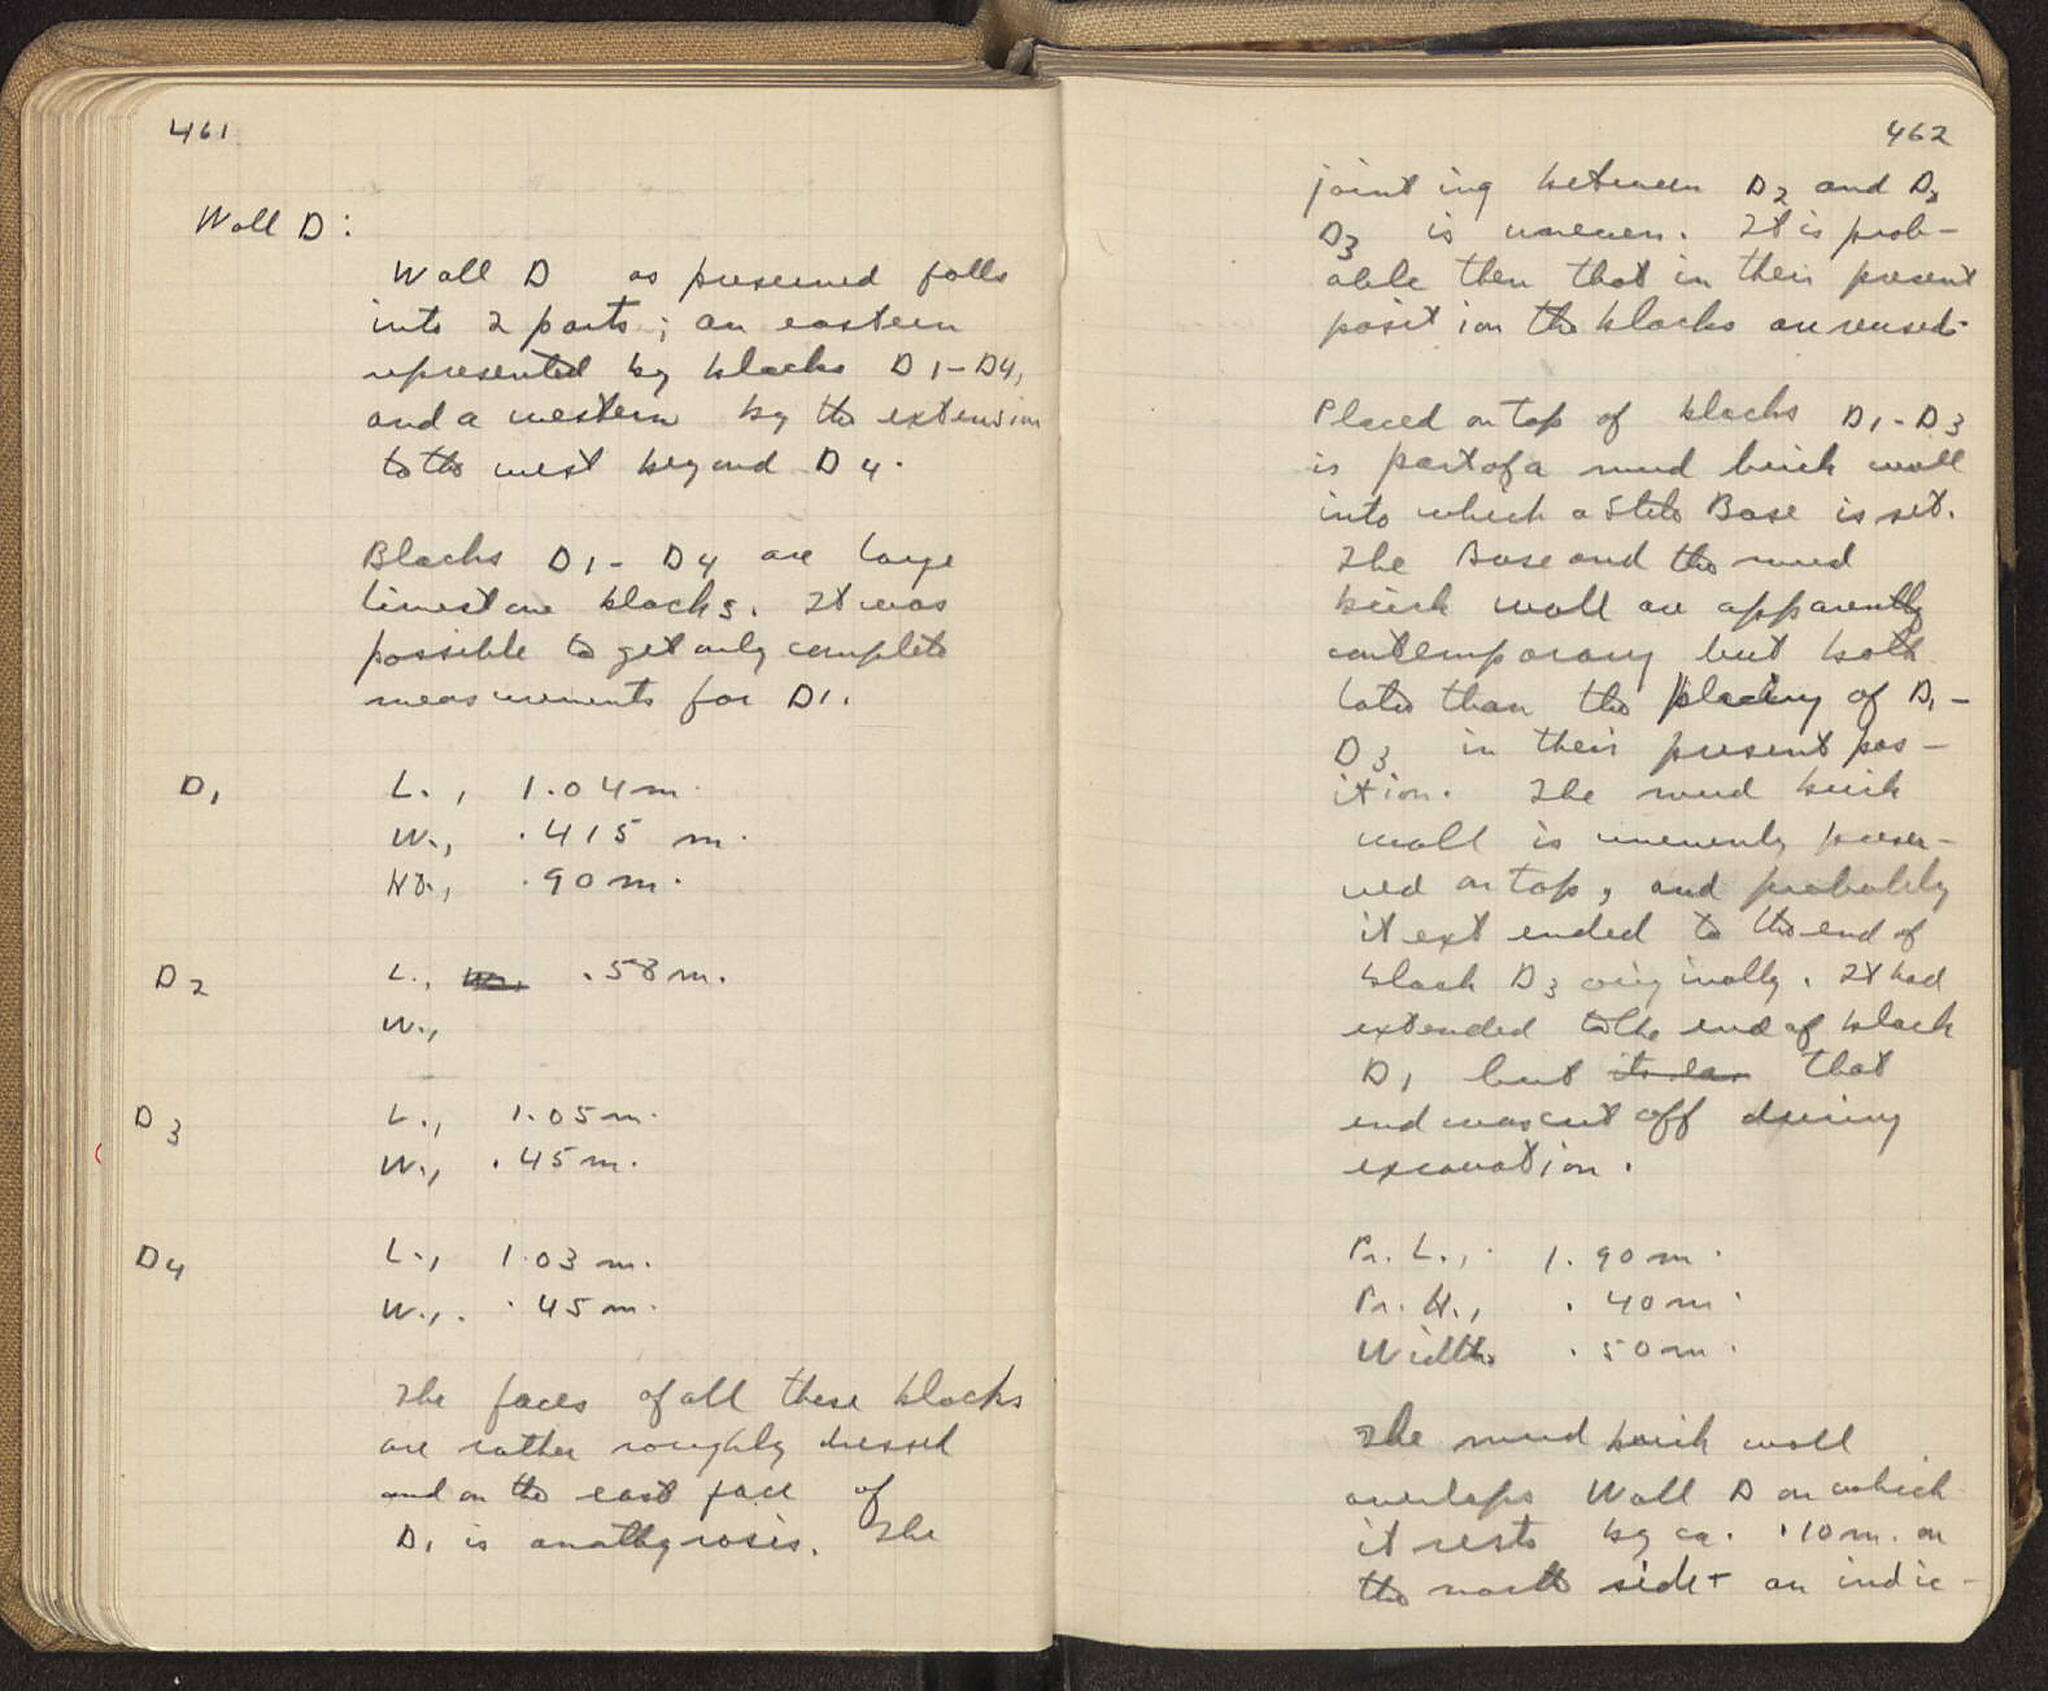 461
Wall D:
Wall D as preserved falls
into 2 parts; an eastern
represented by blocks D1-D4,
and a western by the extension
to the west beyond D4.
Blocks D1-D4 are large
limestone blocks. It was
possible to get only complete
measurements for D1.
D1 L., 1.04 m.
W., .415 m.
Ht., .90 m.
D2 L., .58 m.
W.,
D3 L., 1.05 m.
W., .45 m.
D4 L., 1.03 m.
W., .45 m.
The faces of all these blocks
are rather roughly dressed
and on the east face of
D1 is anathyrosis. The
462
jointing between D2 and D3
D3 is uneven. It is prob-
able then that in their present
position the blocks are reused.
Placed on top of blocks D1-D3
is part of a mud brick wall
into which a Stele Base is set.
The Base and the mud
brick wall are apparently
contemporary but both
later than the placing of D1-
D3 in their present pos-
ition. The mud brick
wall is unevenly preser-
ved on top, and probably
it extended to the end of
block D3 originally. It had
extended to the end of block
D1 but that
end was cut off during
excavation.
Pr. L., 1.90 m.
Pr. H., .40 m.
Width .50 m.
The mud brick wall
overlaps Wall D on which
it rests by ca. .10 m. on
the north side - an indic-